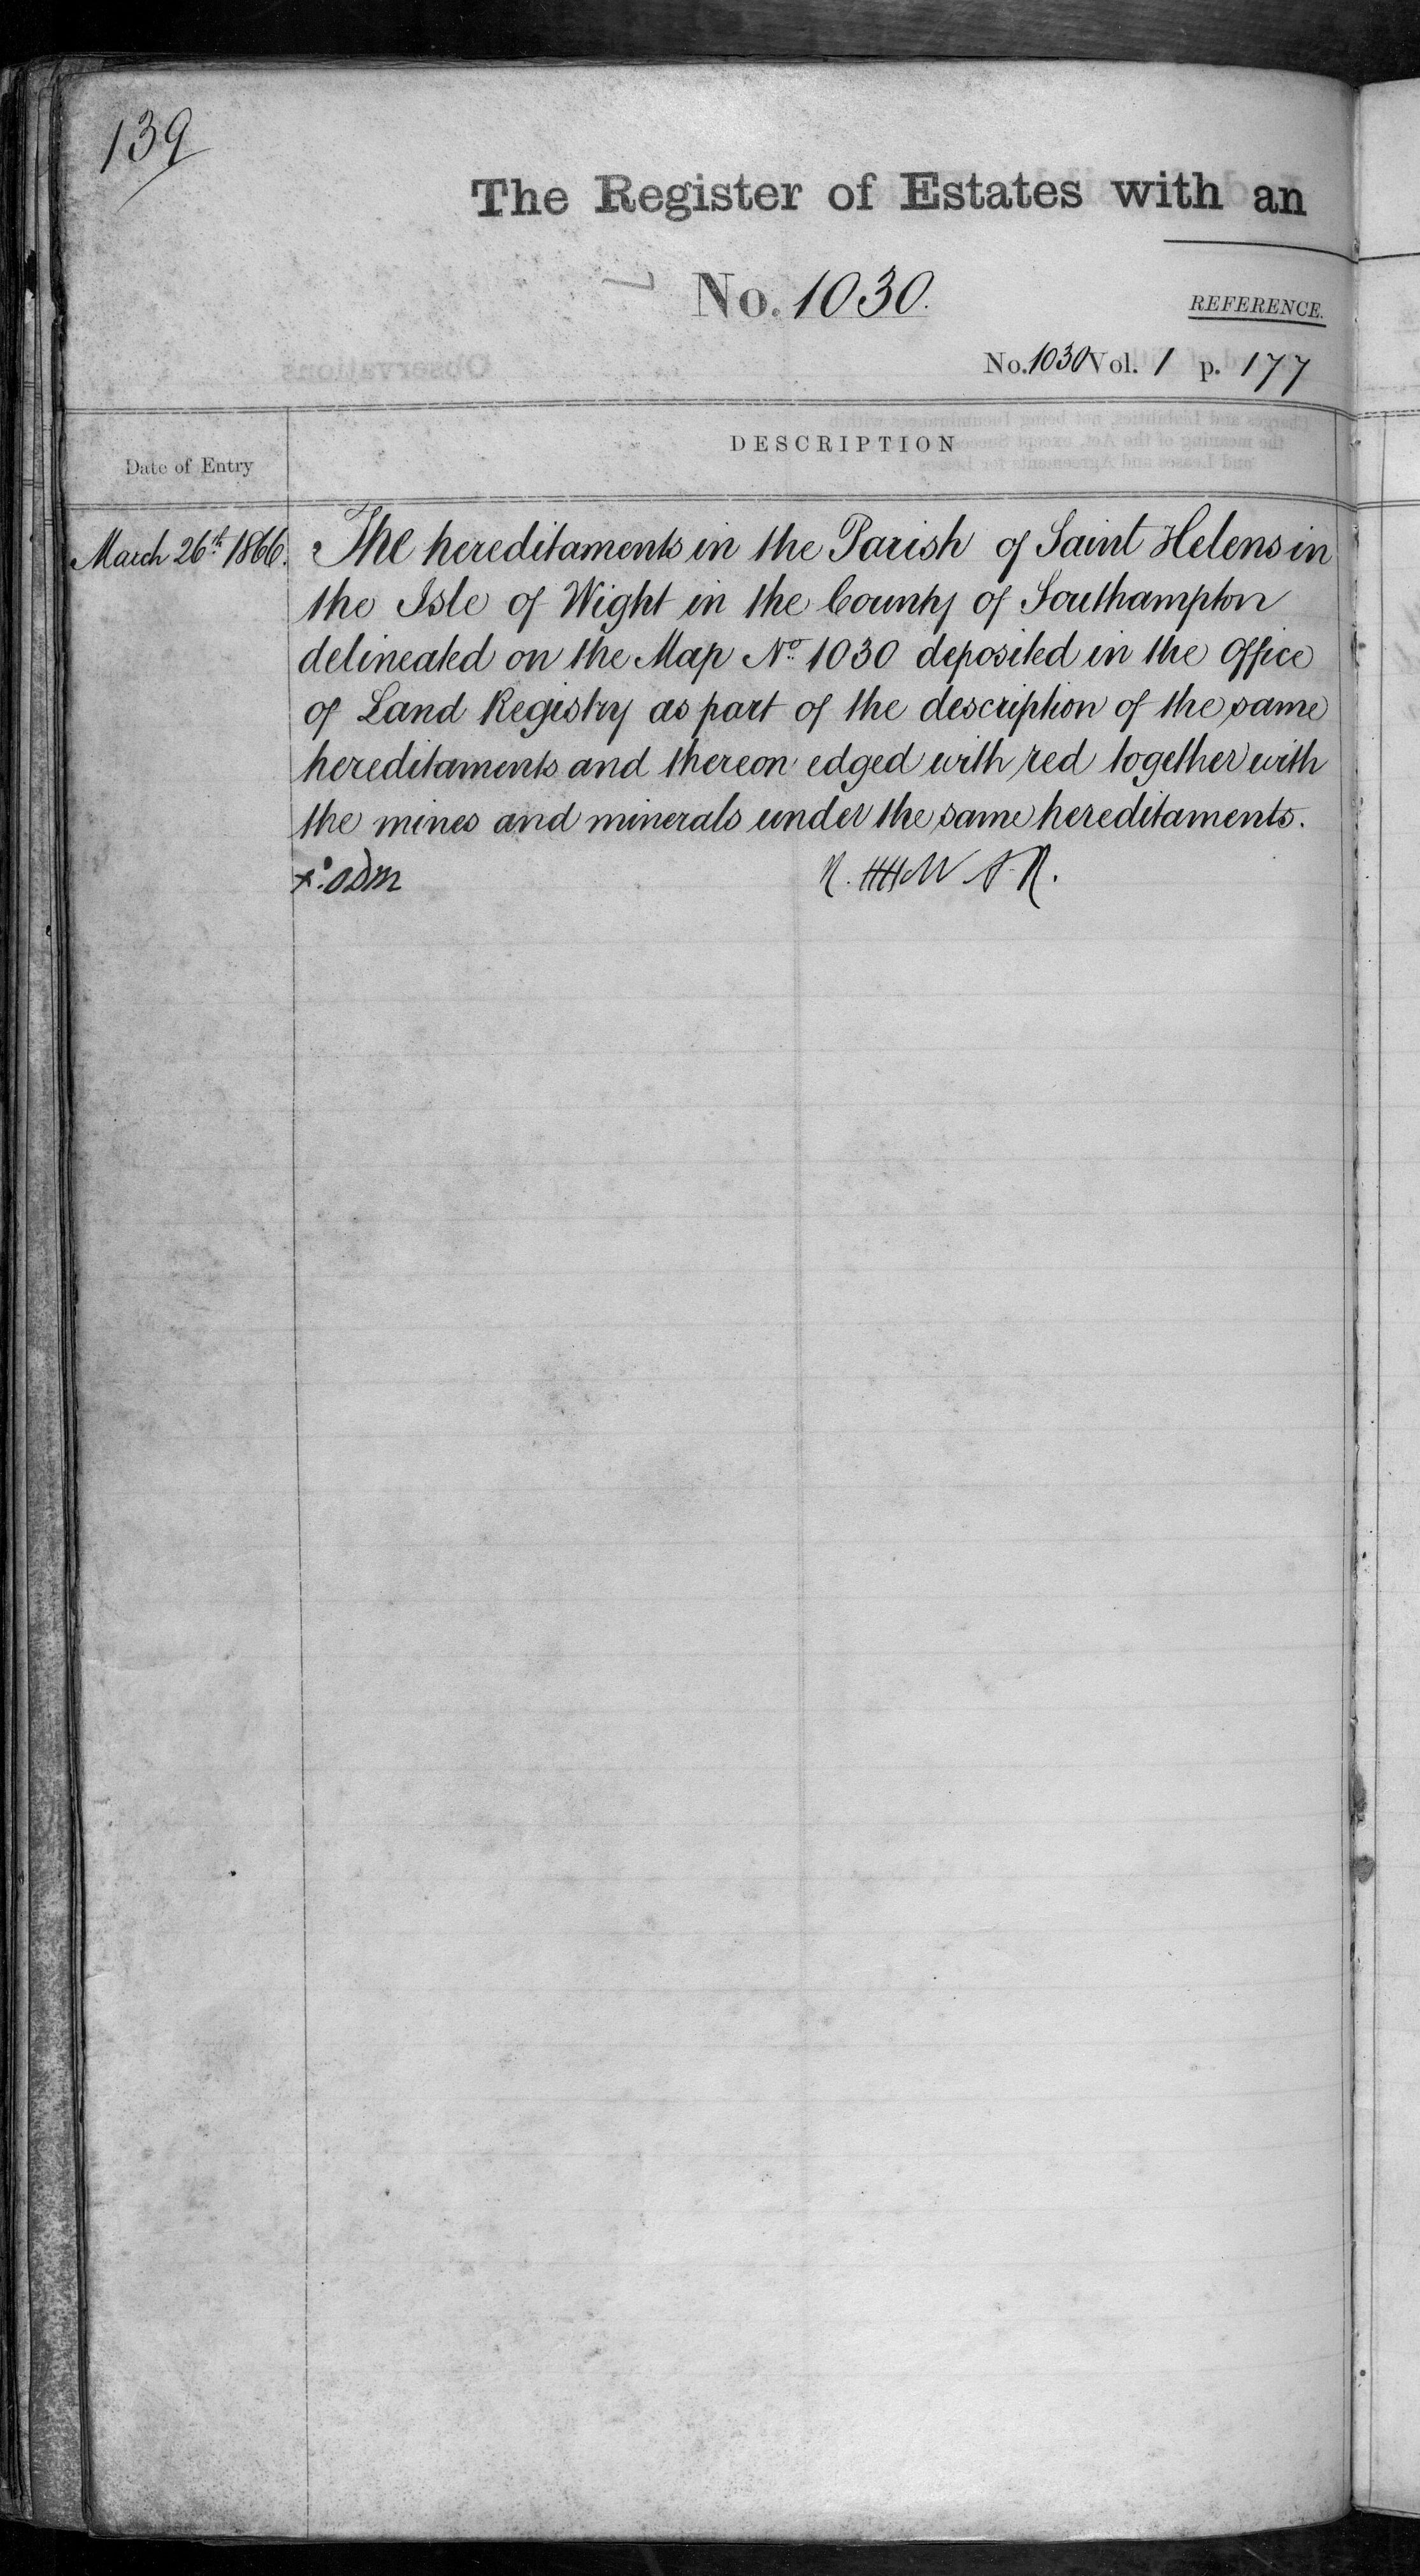 139
The Register of Estates with an
No. 1030.
REFERENCE.
No. 1030 Vol. 1 p. 177
Date of Entry
DESCRIPTION
March 26th 1866.
The hereditaments in the Parish of Saint Helens in
the Isle of Wight in the County of Southampton
delineated on the Map No. 1030 deposited in the Office
of Land Registry as part of the description of the same
hereditaments and thereon edged with red together with
the mines and minerals under the same hereditaments.